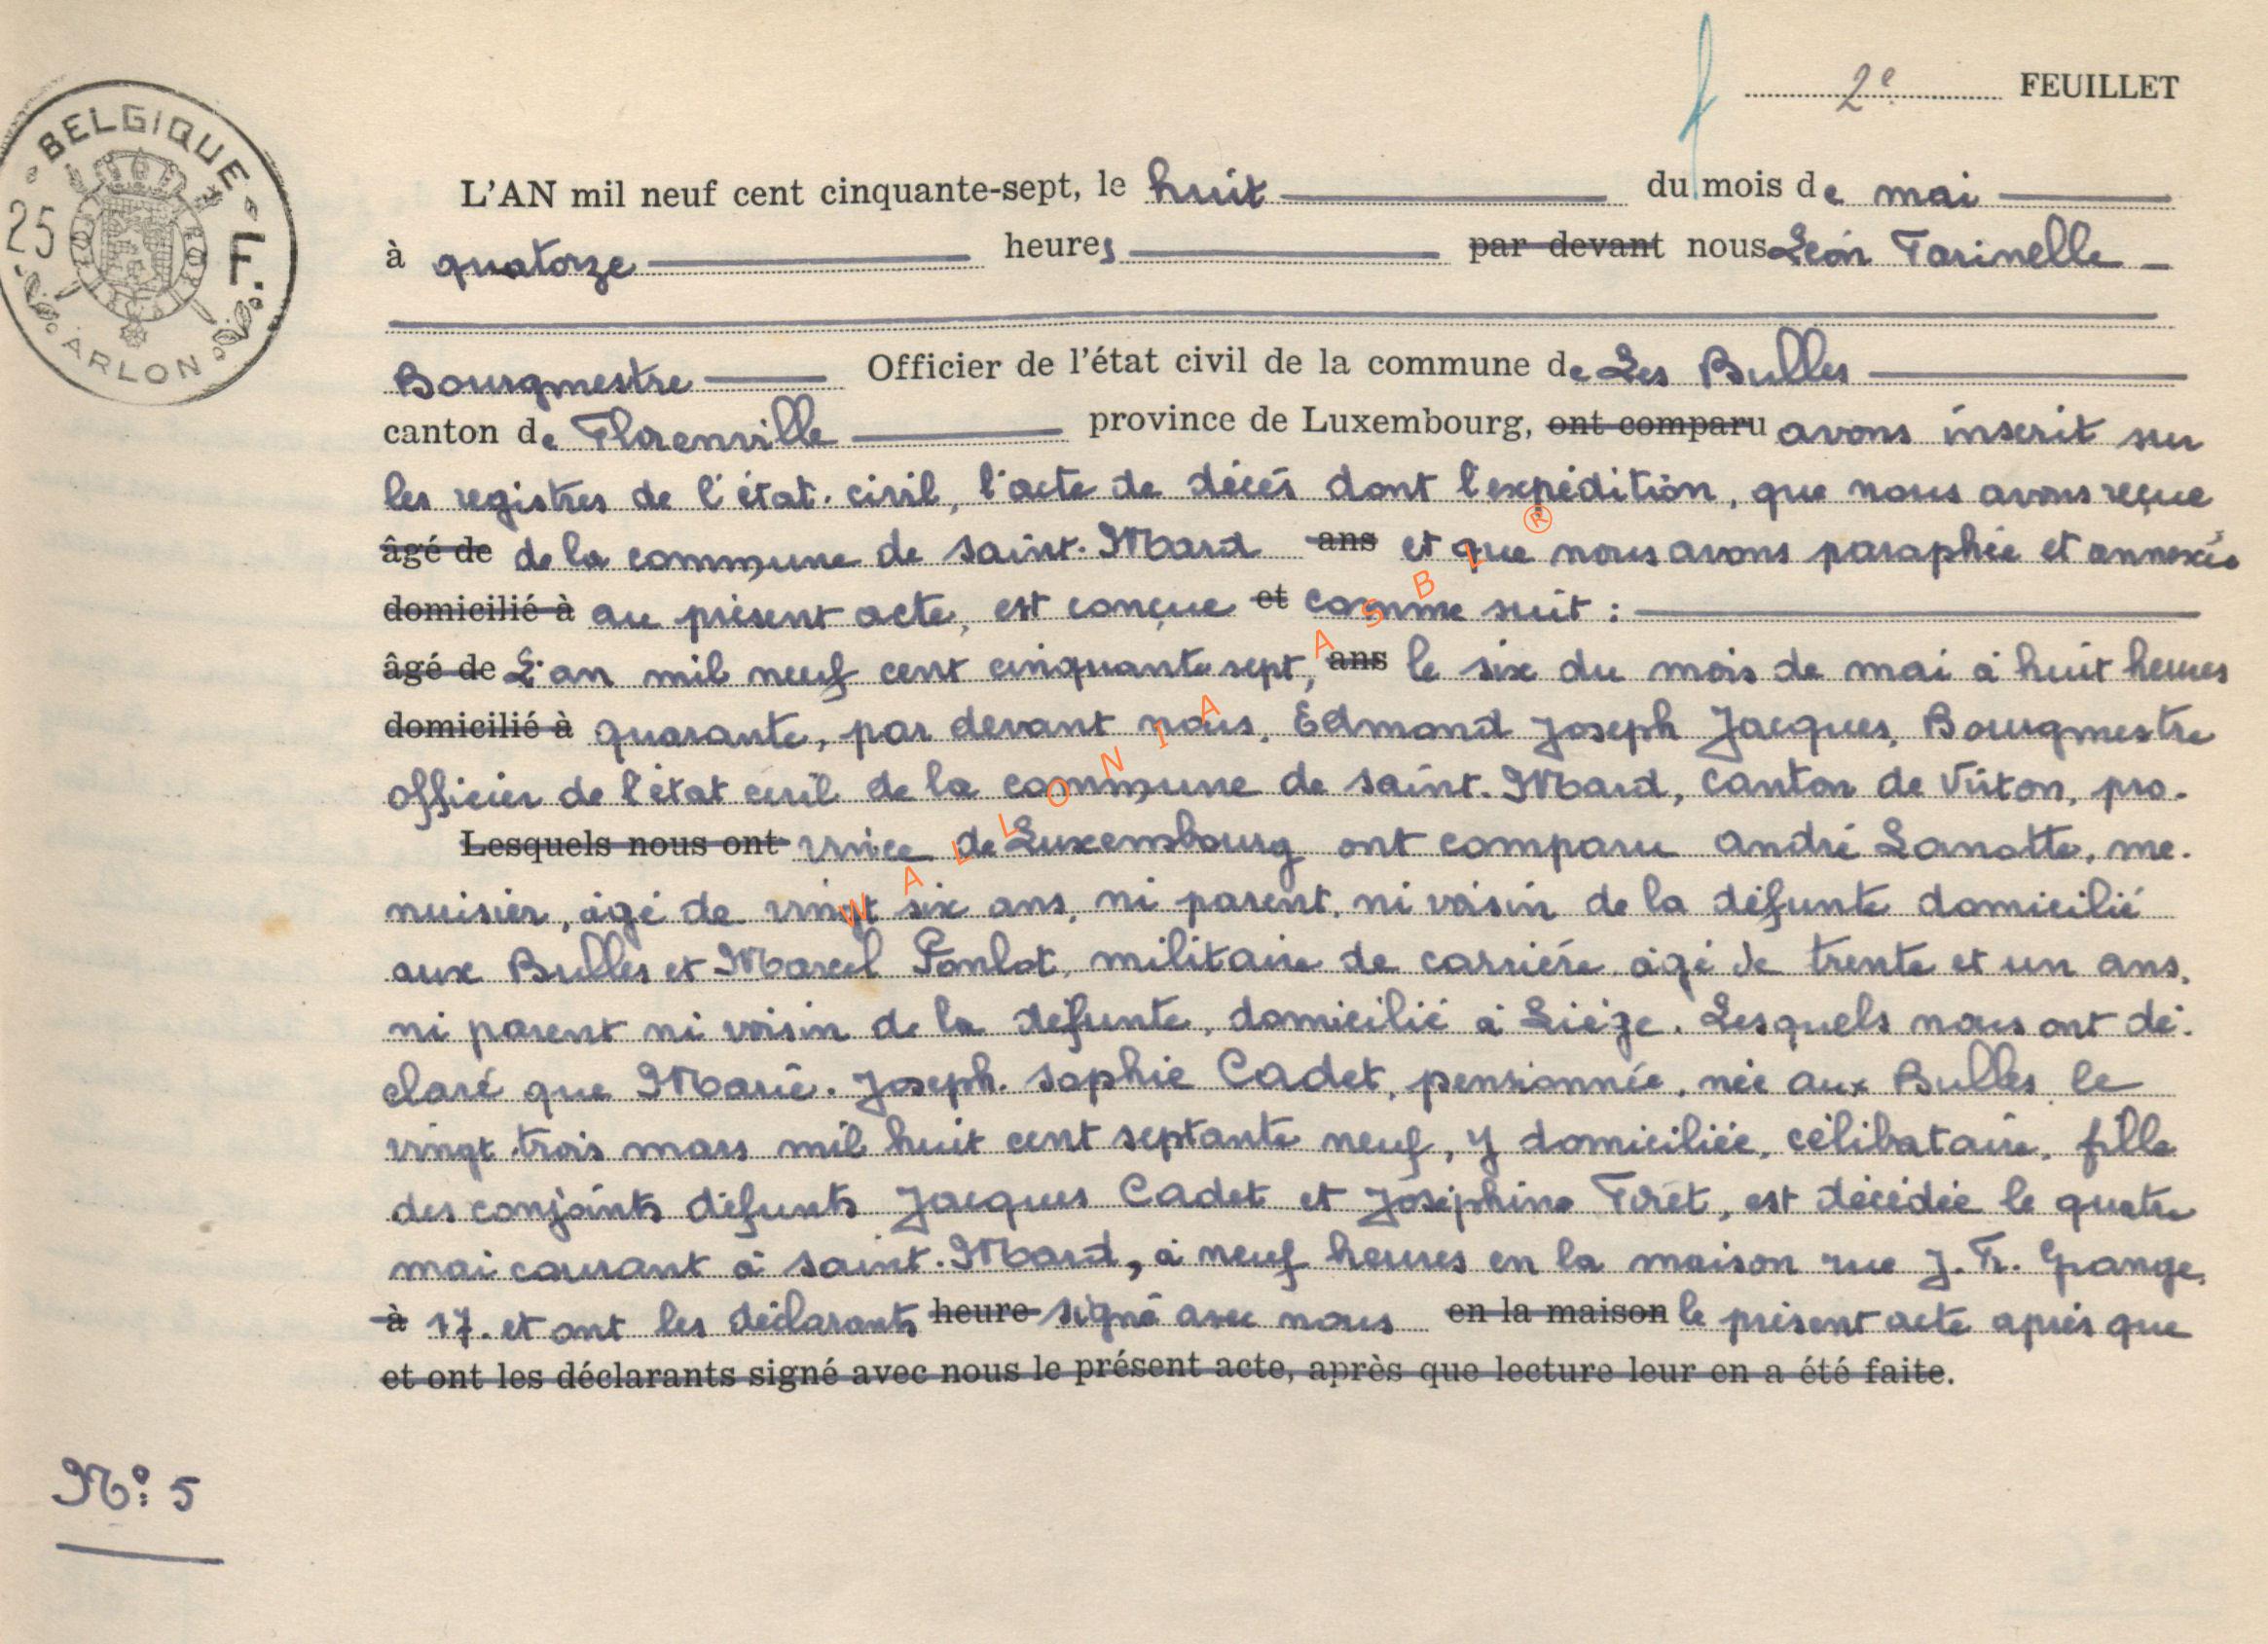 2e FEUILLET
BELGIQUE
25 F.
ARLON
L'AN mil neuf cent cinquante-sept, le huit du mois de mai
à quatorze heures par devant nous Léon Farinelle
Bourgmestre Officier de l'état civil de la commune de Les Bulles
canton de Florenville province de Luxembourg, ont comparu avons inscrit sur
les registres de l'état-civil, l'acte de décès dont l'expédition, que nous avons reçue
âgé de de la commune de Saint-Mard ans et que nous avons paraphée et annexée
domicilié à au présent acte, est conçue et comme suit :
âgé de L'an mil neuf cent cinquante sept, ans le six du mois de mai à huit heures
domicilié à quarante, par devant nous, Edmond Joseph Jacques, Bourgmestre
officier de l'état civil de la commune de Saint-Mard, canton de Virton, pro-
Lesquels nous ont vince de Luxembourg ont comparu André Lanotte, me-
nuisier, âgé de vingt six ans, ni parent, ni voisin de la défunte domicilié
aux Bulles et Marcel Ponlot, militaire de carrière âgé de trente et un ans,
ni parent ni voisin de la défunte, domicilié à Liège. Lesquels nous ont dé-
claré que Marie-Joseph-Sophie Cadet, pensionnée, née aux Bulles le
vingt-trois mars mil huit cent septante neuf, y domiciliée, célibataire, fille
des conjoints défunts Jacques Cadet et Joséphine Tiret, est décédée le quatre
mai courant à Saint-Mard, à neuf heures en la maison rue J. Fr. Grange,
à 17. et ont les déclarants heure signé avec nous en la maison le présent acte après que
et ont les déclarants signé avec nous le présent acte, après que lecture leur en a été faite.
No: 5
WALLONIA ASBL ®